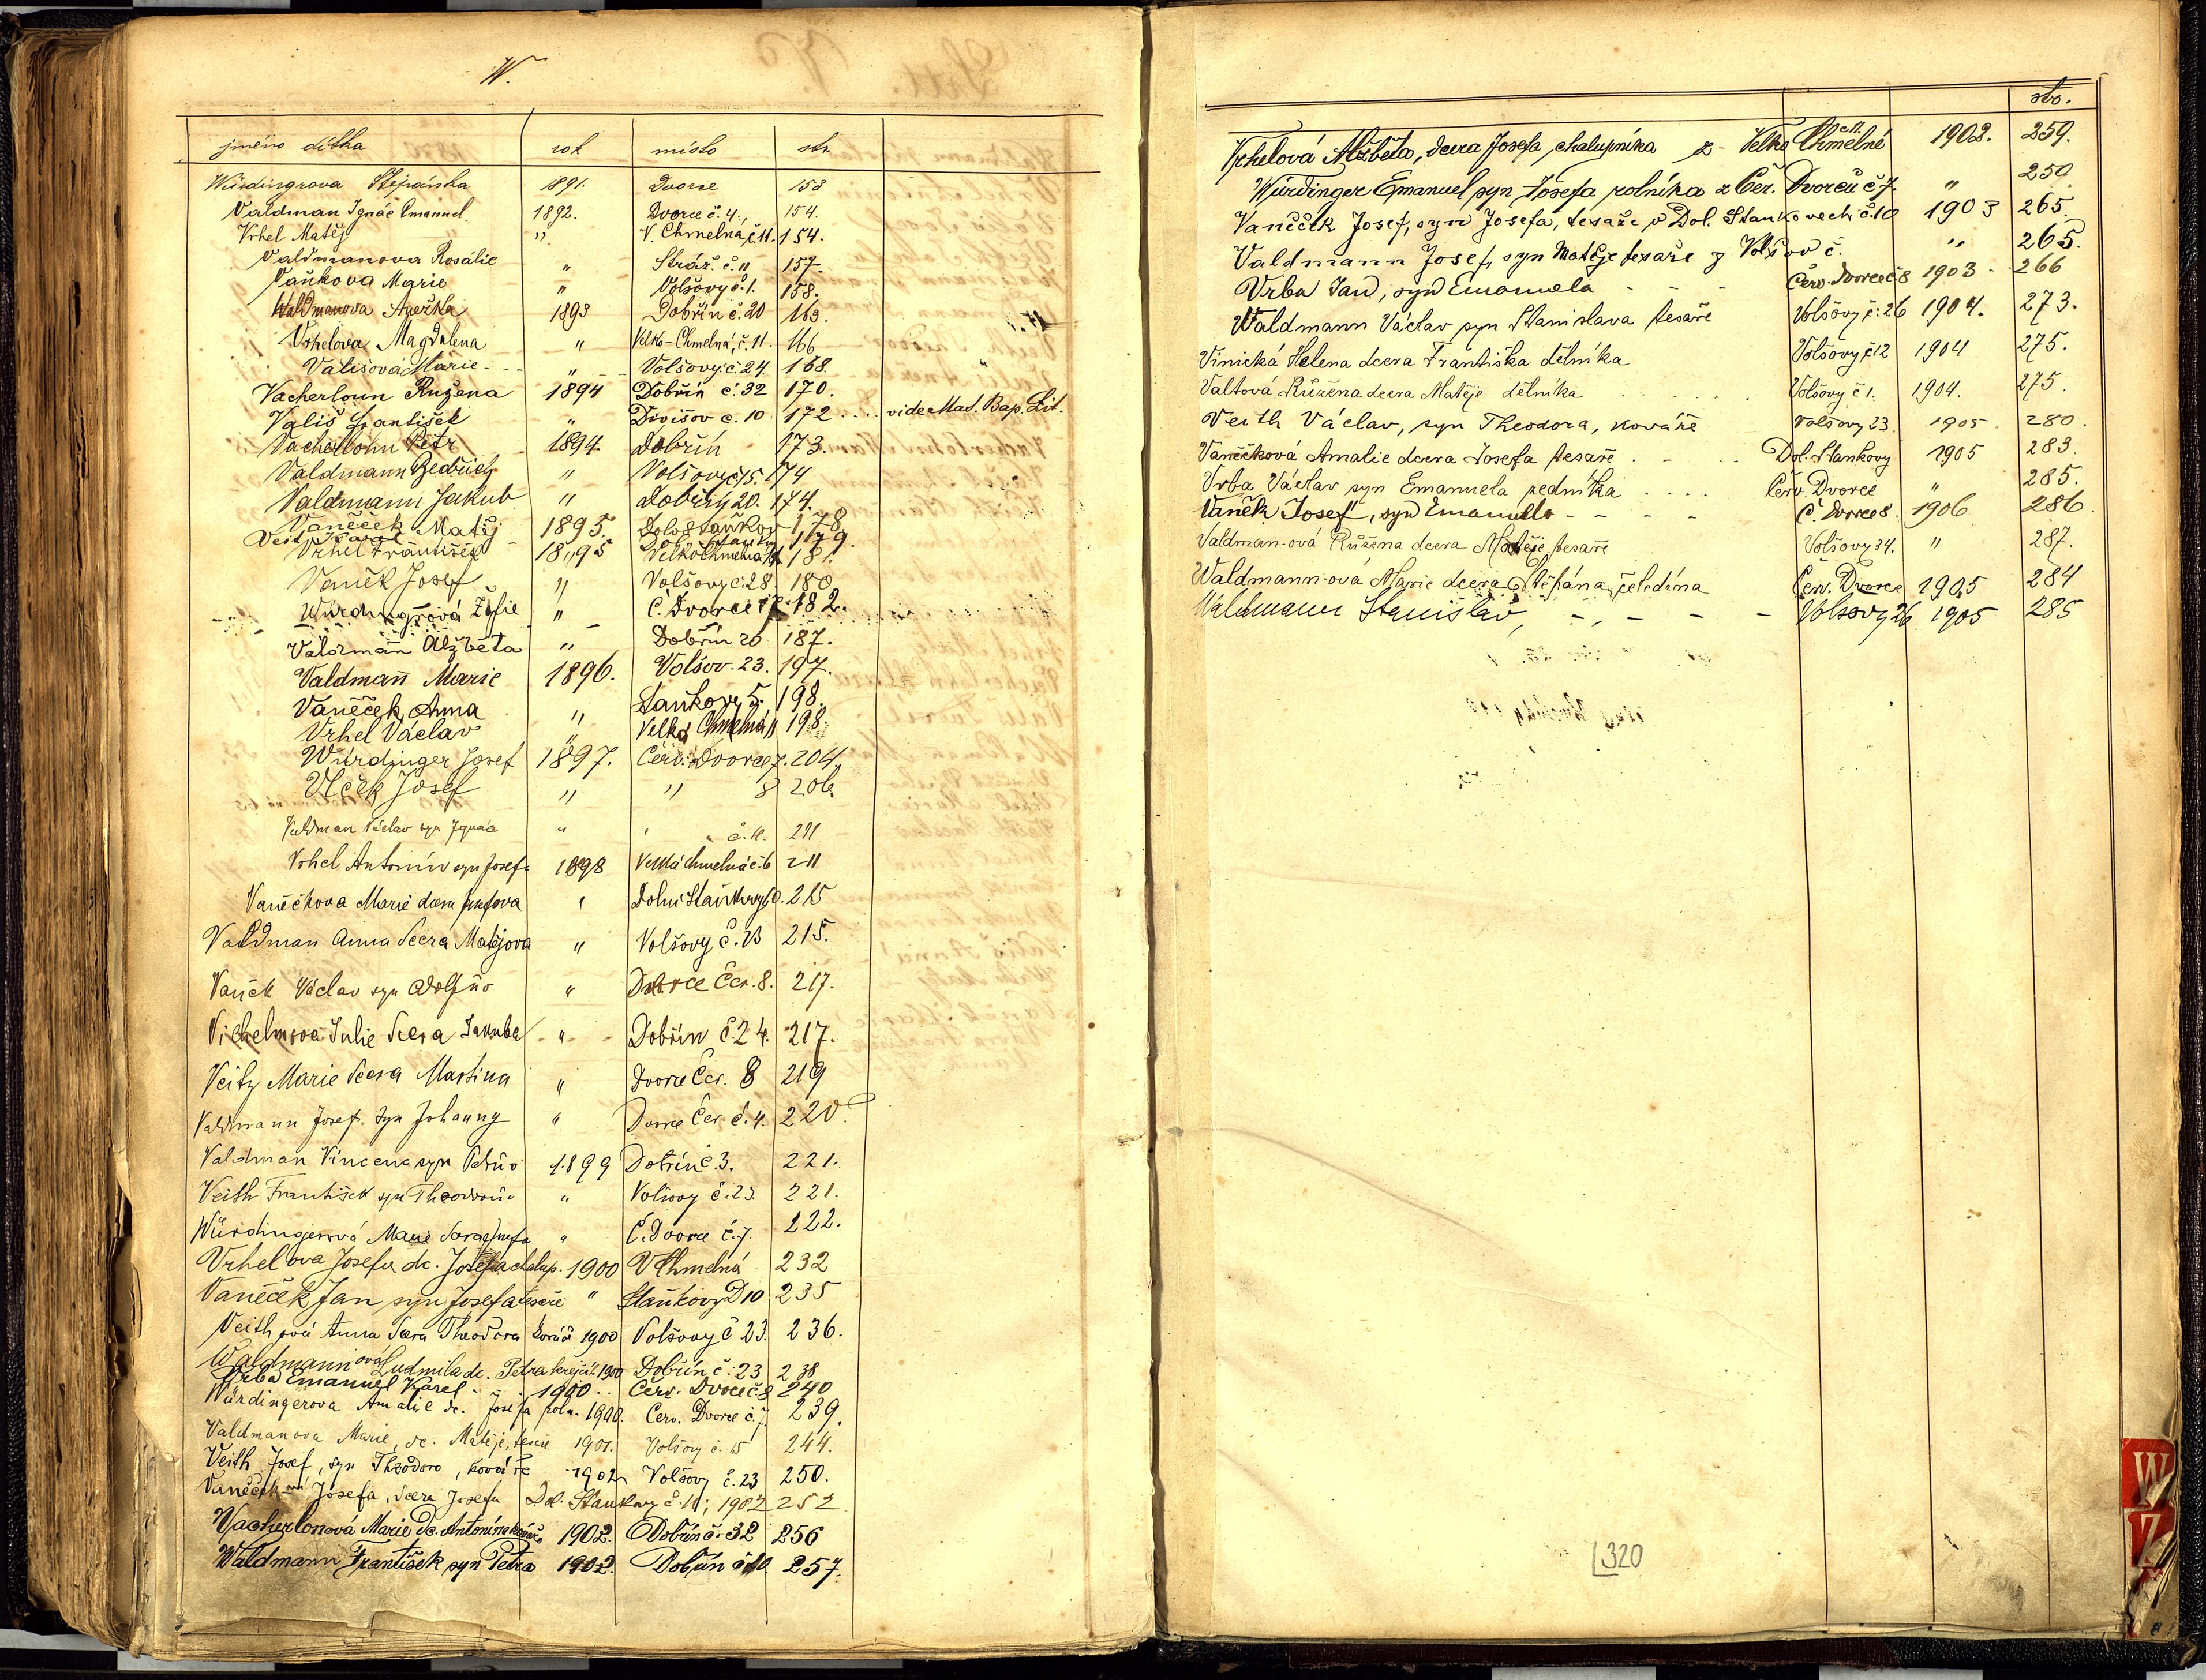 W.
jméno dítka rok místo str.
Würdingrova Štěpánka 1891. Dvorce 153
Valdman Ignác Emanuel. 1892. Dvorce č. 4. 154.
Vrhel Matěj " V. Chmelná, č. 11. 154.
Valdmanova Rosálie " Stráž. č. 11 157.
Vaňkova Marie " Volšovy č. 1. 158.
Waldmanova Anežka 1893 Dobřín č. 20 163.
Vrhelova Magdalena " Velko-Chmelná, č. 11. 166
Vališová Marie " Volšovy č. 24. 168.
Vacherloun Ružena 1894 Dobřín č. 32 170.
Vališ František " Divišov č. 10 172 vide Mat. Bap. Lit.
Vacherlohn Petr 1894. Dobřín 173.
Valdmann Bedřich " Volšovy č. 15. 174
Valdmann Jakub " Dobřín 20. 174.
Vaněček Matěj 1895. Dolo Staňkov 178
Veit Karel 179.
Vrhel František 1895 Velko Chmelná 11 181.
Vaněk Josef " Volšovy č. 28. 180
Würdingrová Žofie " Č. Dvorce 7. 182.
Valdman Alžběta " Dobřín 20 187.
Valdmann Marie 1896. Volšov. 23. 197.
Vaněček Anna " Staňkovy 5. 198.
Vrhel Václav " Velká Chmelná 11 198.
Würdinger Josef 1897. Červ. Dvorce 7. 204.
Vlček Josef " " 8 206.
Valdman Václav syn Ignáca " " č. 4. 211
Vrhel Antonín syn Josefa 1898 Velká Chmelná č. 6 211
Vaněčkova Marie dcera Josefova " Dolní Staňkovy 10. 215
Valdman Anna dcera Matějova " Volšovy č. 23 215.
Vaněk Václav syn Adolfův " Dvorce Čer. 8. 217.
Vilhelmova Julie dcera Jakuba " Dobřín č. 24. 217.
Veitz Marie dcera Martina " Dvorce Čer. 8 219
Valdmann Josef syn Johanny " Dvorce Čer. č. 4. 220.
Valdman Vincenc syn Petrův 1899 Dobřín č. 3. 221.
Veith František syn Theodorův " Volšovy č. 23. 221.
Würdingerová Marie dcera Josefa " Č. Dvorce č. 7. 222.
Vrhelova Josefa dc. Josefa chalup. 1900 V Chmelná 232
Vaněček Jan syn Josefa tesaře " Staňkovy D 10 235
Veithová Anna dcera Theodora kováře 1900 Volšovy č 23. 236.
Waldmannová Ludmila dc. Petra krejčí 1900 Dobřín č. 23 238
Vrba Emanuel Karel 1900 Červ. Dvorce č. 8 240
Würdingerova Amalie dc. Josefa roln. 1900. Červ. Dvorce č. 7. 239.
Valdmanova Marie, dc. Matěje, tesaře 1901. Volšovy č. 15 244.
Veith Josef, syn Theodora, kováře 1902 Volšovy č. 23 250.
Vaněčková Josefa, dcera Josefa Dol. Staňkovy č. 10, 1902 252
Vacherlonová Marie dc. Antonína kováře 1902. Dobřín č. 32 256
Waldmann František syn Petra 1902. Dobřín č. 10 257.
str.
Vrhelová Alžběta, dcera Josefa, chalupníka z Velko Chmelné č. 11. 1902. 259.
Würdinger Emanuel syn Josefa rolníka z Čer. Dvorců č. 7. " 259
Vaněček Josef, syn Josefa, tesaře v Dol. Staňkovech č. 10 1903 265.
Valdmann Josef, syn Matěje tesaře z Volšov č. " 265.
Vrba Jan, syn Emanuela Červ. Dvorce č 8 1903 266
Waldmann Václav syn Stanislava tesaře Volšovy č. 26 1904. 273.
Vinická Helena dcera Františka dělníka Volšovy č 12 1904 275.
Valtová Růžena dcera Matěje dělníka Volšovy č 1. 1904. 275.
Veith Václav, syn Theodora, kováře Volšovy 23. 1905 280.
Vaněčková Amalie dcera Josefa tesaře Dol. Staňkovy 1905 283.
Vrba Václav syn Emanuela zedníka Červ. Dvorce " 285.
Vaněk Josef, syn Emanuela Č. Dvorce 8 1906 286.
Valdman-ová Růžena dcera Matěje, tesaře Volšovy 34. " 287.
Waldmann-ová Marie dcera Štěpána, čeledína Červ. Dvorce 1905 284
Waldmann Stanislav, Volšovy 26 1905 285
320
W
Z